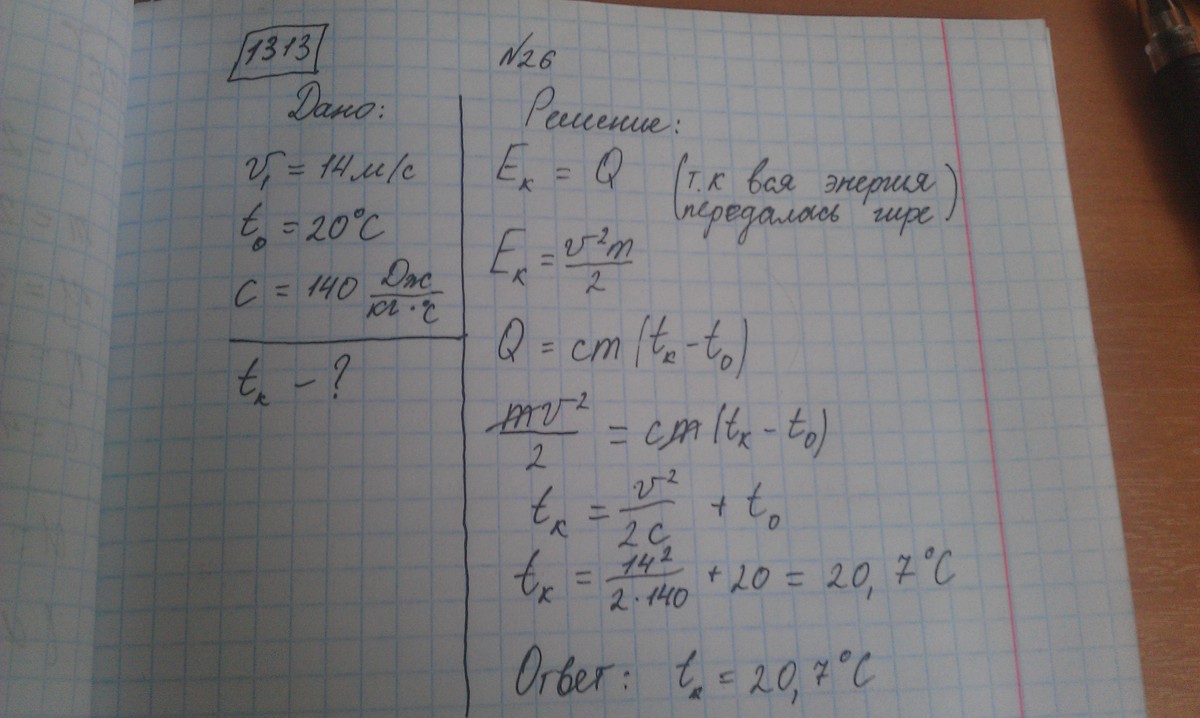 1313
№26
Дано:
v₁ = 14 м/с
t₀ = 20°C
c = 140 Дж/кг·°C
tк – ?
Решение:
Eк = Q (т.к вся энергия
передалась гире)
Eк = v²m/2
Q = cm(tк - t₀)
mv²/2 = cm(tк - t₀)
tк = v²/2c + t₀
tк = 14²/2·140 + 20 = 20,7°C
Ответ: tк = 20,7°C